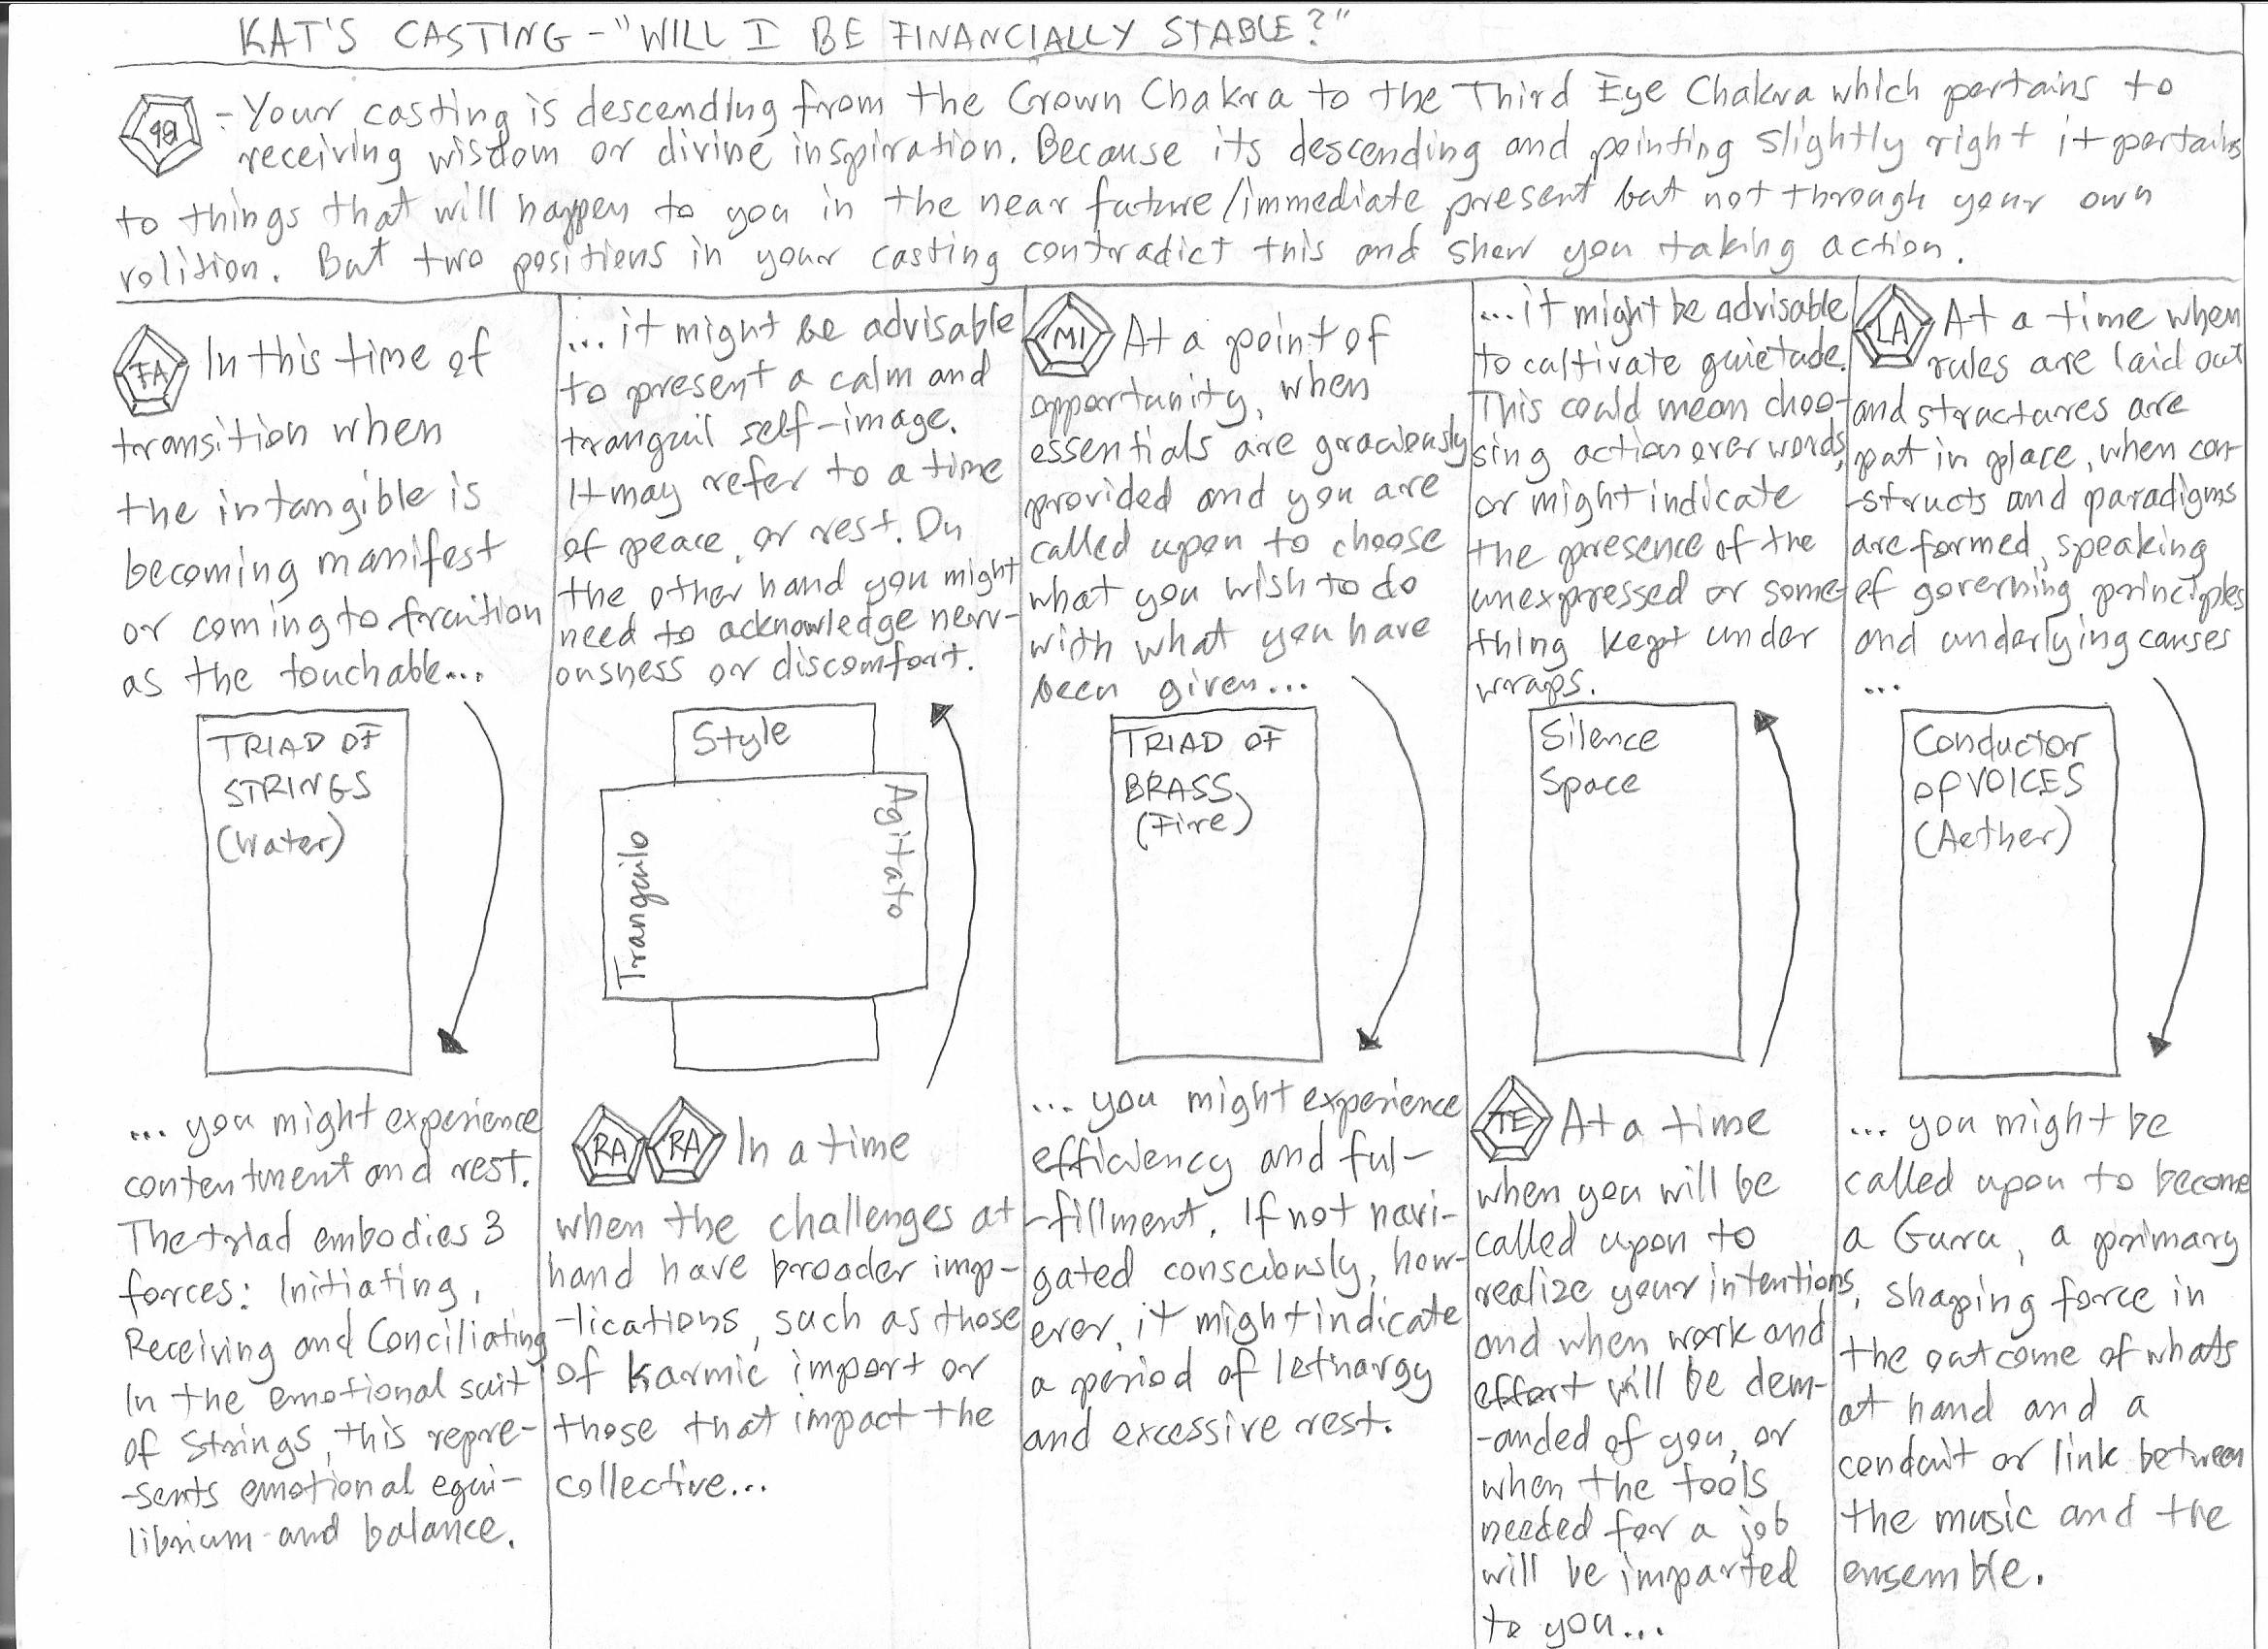 KAT'S CASTING - "WILL I BE FINANCIALLY STABLE?"
- Your casting is descending from the Crown Chakra to the Third Eye Chakra which pertains to
receiving wisdom or divine inspiration. Because its descending and pointing slightly right it pertains
to things that will happen to you in the near future/immediate present but not through your own
volition. But two positions in your casting contradict this and show you taking action.
FA In this time of
transition when
the intangible is
becoming manifest
or coming to fruition
as the touchable...
TRIAD OF
STRINGS
(Water)
... you might experience
contentment and rest.
The triad embodies 3
forces: Initiating,
Receiving and Conciliating
In the emotional suit
of Strings, this repre-
-sents emotional equi-
librium and balance.
...it might be advisable
to present a calm and
tranquil self-image.
It may refer to a time
of peace, or rest. On
the other hand you might
need to acknowledge nerv-
ousness or discomfort.
Style
Tranquilo
Agitato
RA RA In a time
when the challenges at
hand have broader imp-
-lications, such as those
of karmic import or
those that impact the
collective...
MI At a point of
opportunity, when
essentials are graciously
provided and you are
called upon to choose
what you wish to do
with what you have
been given...
TRIAD OF
BRASS
(Fire)
... you might experience
efficiency and ful-
-fillment. If not navi-
gated consciously, how-
ever, it might indicate
a period of lethargy
and excessive rest.
...it might be advisable
to cultivate quietude.
This could mean choo-
sing action over words,
or might indicate
the presence of the
unexpressed or some-
thing kept under
wraps.
Silence
Space
TE At a time
when you will be
called upon to
realize your intentions,
and when work and
effort will be dem-
-anded of you, or
when the tools
needed for a job
will be imparted
to you...
LA At a time when
rules are laid out
and structures are
put in place, when con-
-structs and paradigms
are formed, speaking
of governing principles
and underlying causes
...
Conductor
of VOICES
(Aether)
... you might be
called upon to become
a Guru, a primary
shaping force in
the outcome of whats
at hand and a
conduit or link between
the music and the
ensemble.